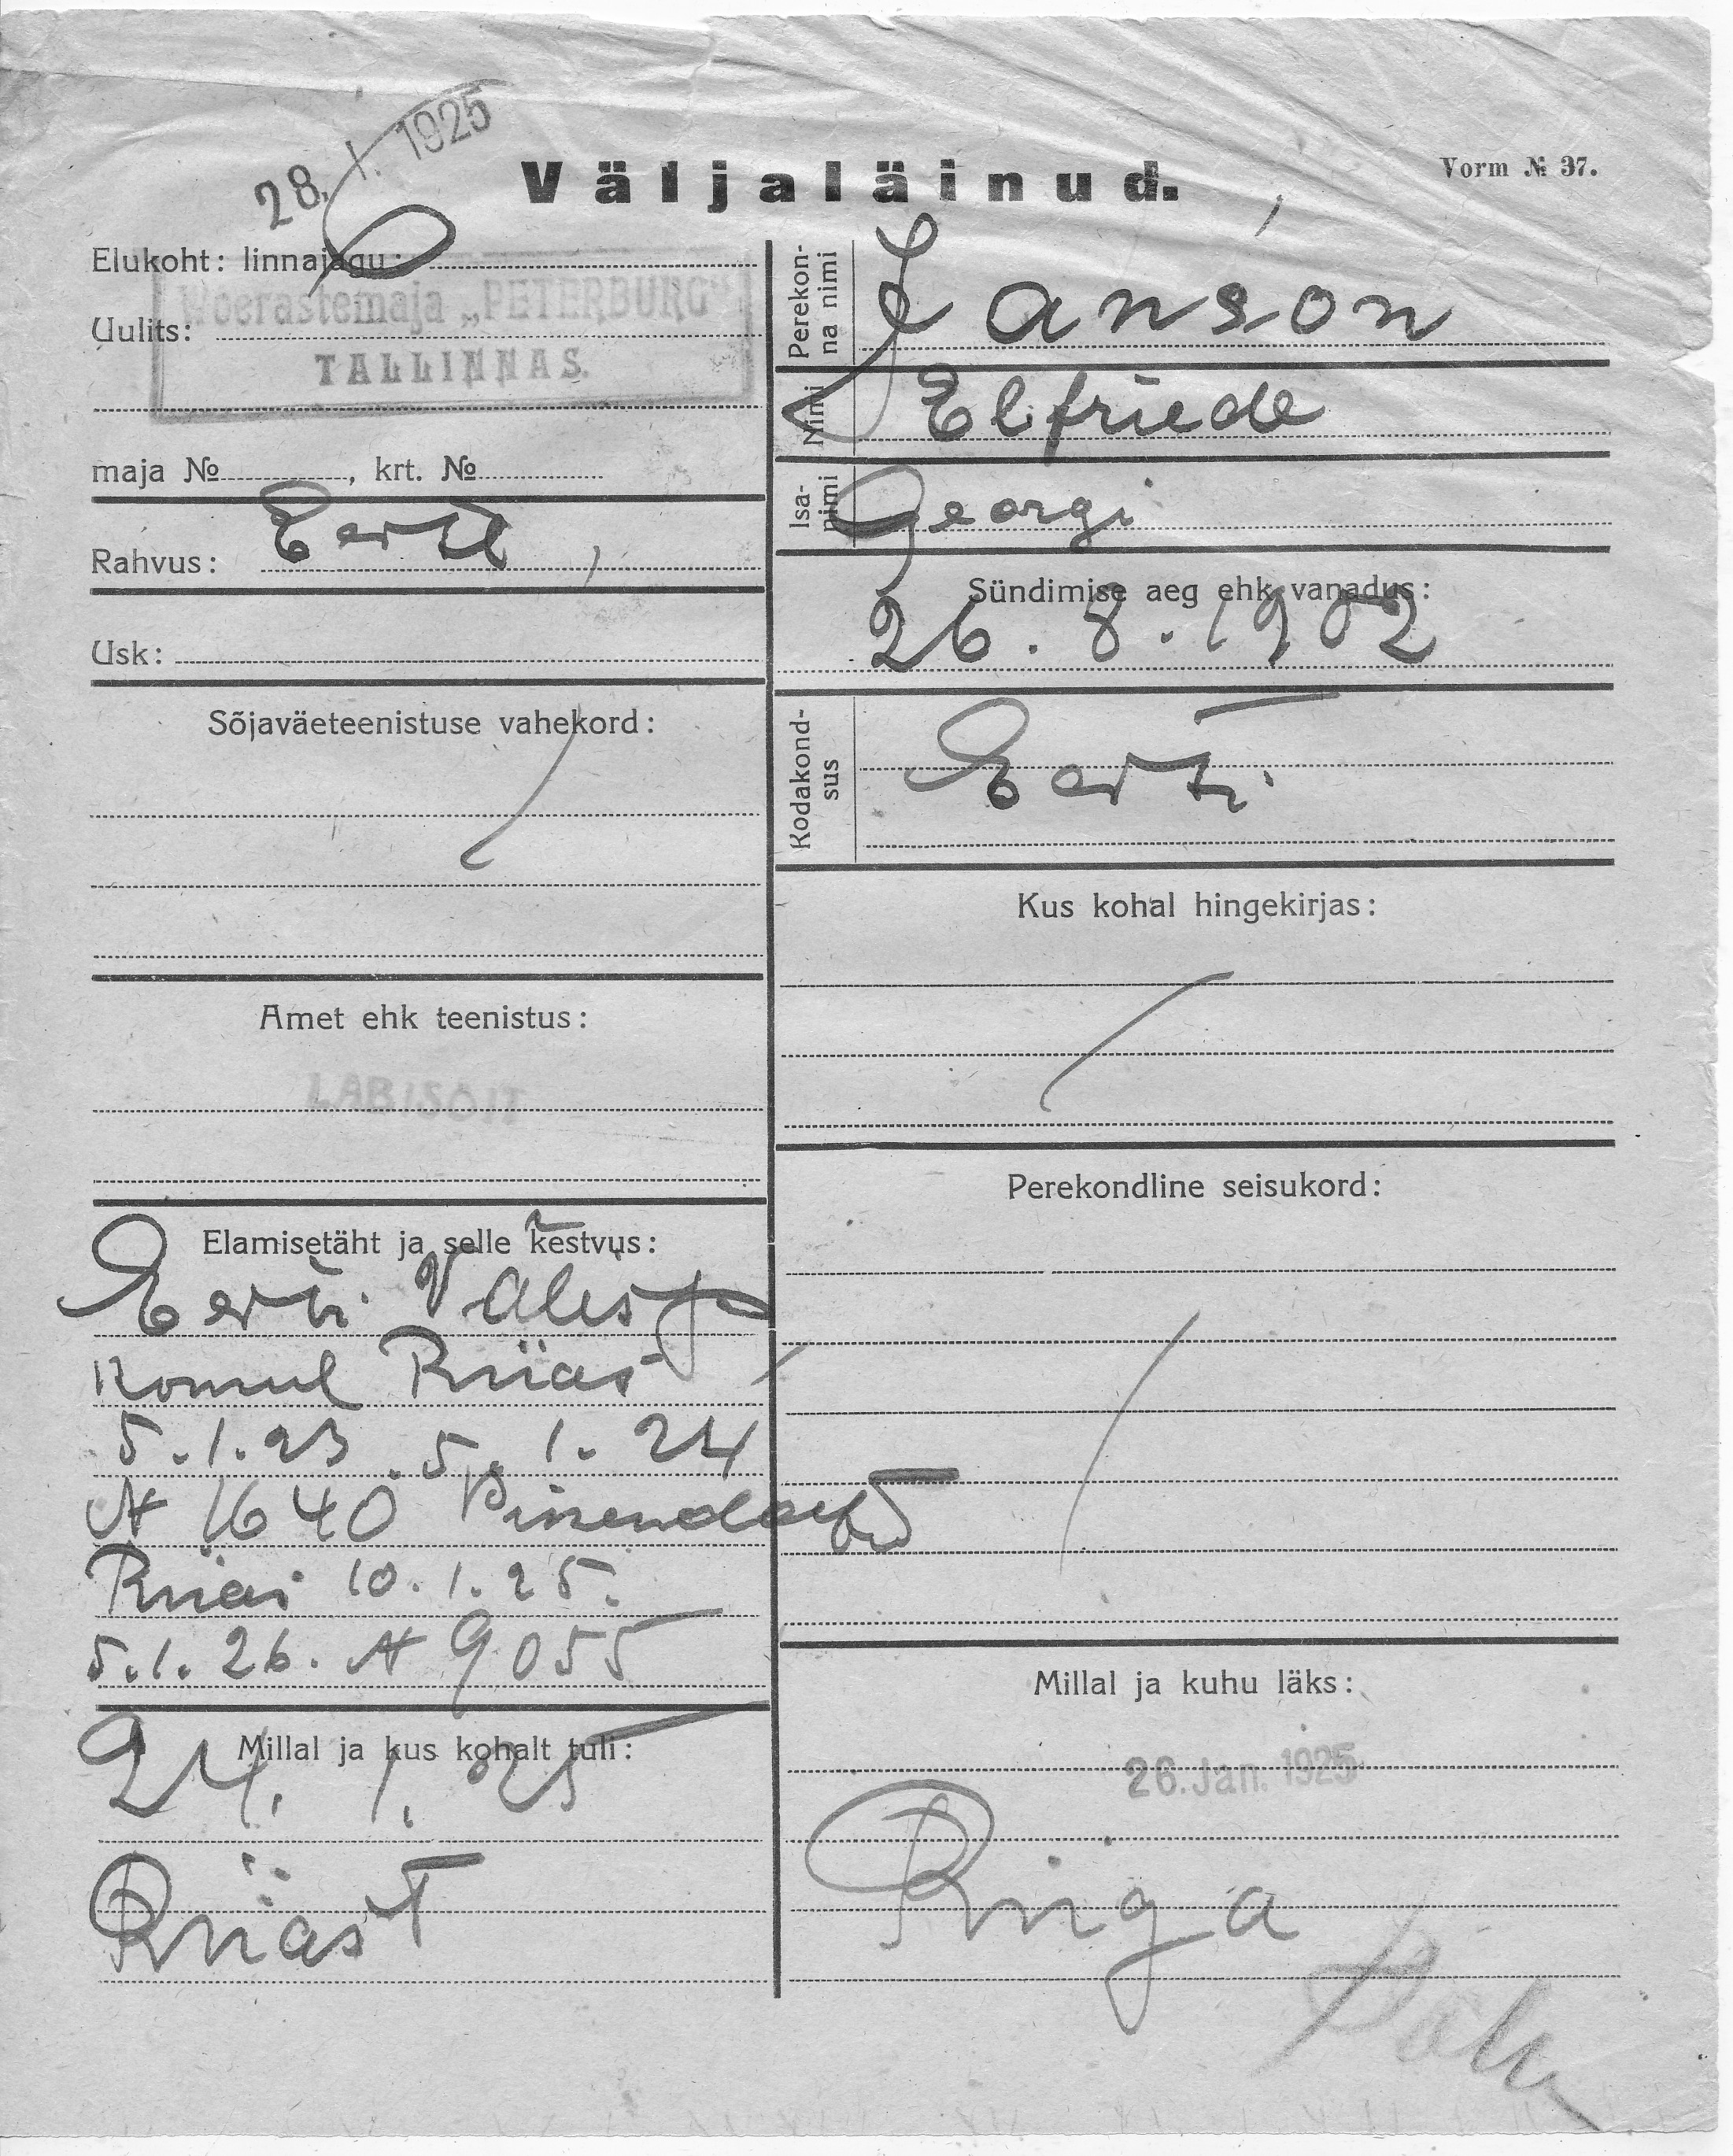 28. 1. 1925
Väljaläinud.
Vorm № 37.
Elukoht: linnajagu:
Woerastemaja „PETERBURG"
Uulits:
TALLINNAS.
maja № , krt. №
Rahvus: Eesti
Usk:
Sõjaväeteenistuse vahekord:
Amet ehk teenistus:
LÄBISÕIT
Elamisetäht ja selle kestvus:
Eesti Välisp
Konsul Riias
5.1.23. 5. 1. 24
N 1640
Riias 10.1.25.
5.1.26. N 9055
Millal ja kus kohalt tuli:
24. 1. 25
Riiast
Perekon-
na nimi
Janson
Nimi
Elfriede
Isa-
nimi
Georgi
Sündimise aeg ehk vanadus:
26. 8. 1902
Kodakond-
sus
Eesti
Kus kohal hingekirjas:
Perekondline seisukord:
Millal ja kuhu läks:
26. Jan. 1925
Riiga